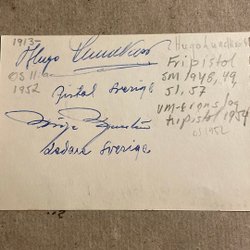 1913-
Hugo Lundkvist
OS 11:a
1952
Pistol Sverige
Sverige
? Hugo Lundkvist
Fripistol
SM 1948, 49,
51, 57
VM-brons lag
fripistol 1954
OS 1952